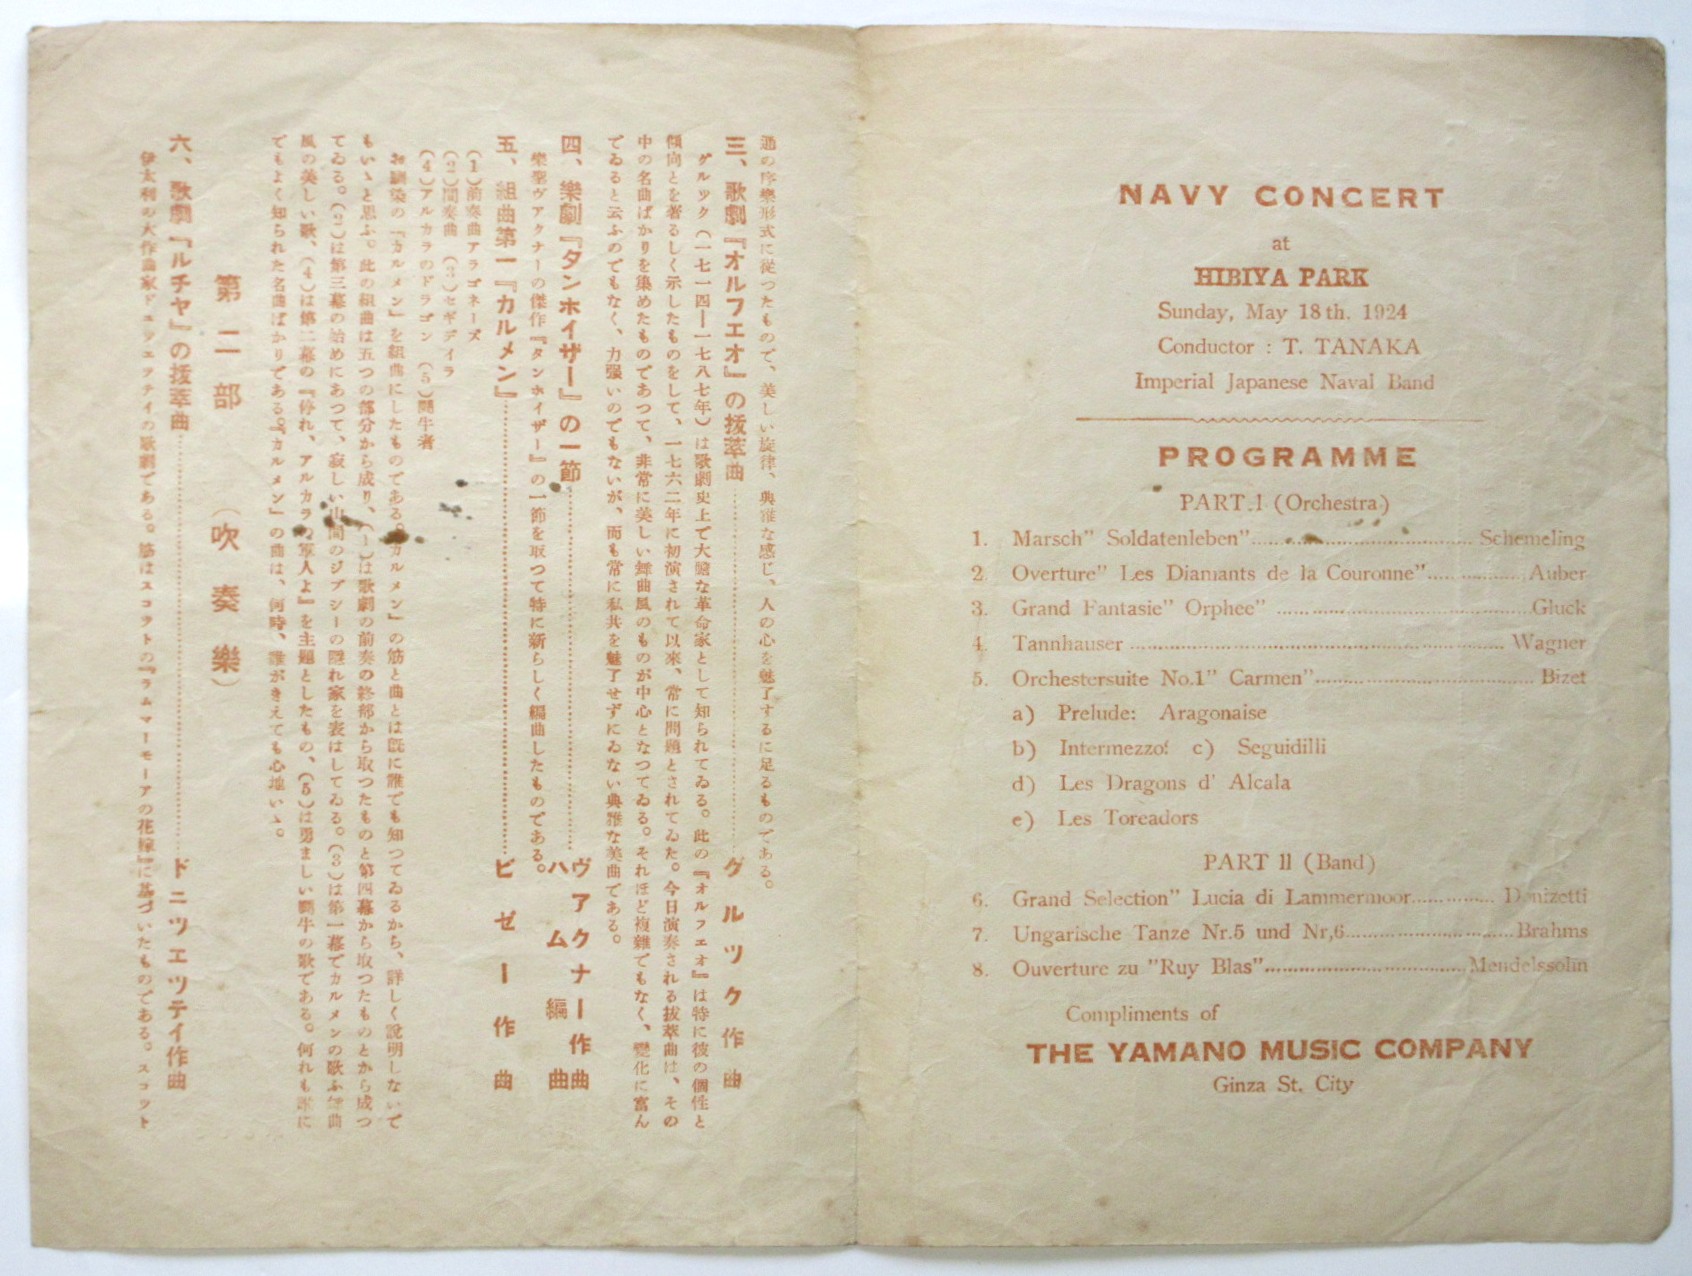 NAVY CONCERT
at
HIBIYA PARK
Sunday, May 18th. 1924
Conductor : T. TANAKA
Imperial Japanese Naval Band
PROGRAMME
PART I (Orchestra)
1. Marsch" Soldatenleben"........................................ Schemeling
2. Overture" Les Diamants de la Couronne"................... Auber
3. Grand Fantasie" Orphee" ........................................Gluck
4. Tannhauser ............................................................ Wagner
5. Orchestersuite No.1" Carmen"................................... Bizet
a) Prelude: Aragonaise
b) Intermezzo: c) Seguidilli
d) Les Dragons d' Alcala
e) Les Toreadors
PART II (Band)
6. Grand Selection" Lucia di Lammermoor............... Donizetti
7. Ungarische Tanze Nr.5 und Nr,6...........................Brahms
8. Ouverture zu "Ruy Blas"......................................Mendelssolin
Compliments of
THE YAMANO MUSIC COMPANY
Ginza St. City
通の序樂形式に從つたもので、美しい旋律、典雅な感じ、人の心を魅了するに足るものである。
三、歌劇『オルフエオ』の拔萃曲……………………グルツク作曲
グルツク(一七一四―一七八七年)は歌劇史上で大膽な革命家として知られてゐる。此の『オルフエオ』は特に彼の個性と
傾向とを著るしく示したものをして、一七六二年に初演されて以來、常に問題とされてゐた。今日演奏される拔萃曲は、その
中の名曲ばかりを集めたものであつて、非常に美しい舞曲風のものが中心となつてゐる。それほど複雜でもなく、變化に富ん
でゐると云ふのでもなく、力强いのでもないが、而も常に私共を魅了せずにゐない典雅な美曲である。
四、樂劇『タンホイザー』の一節……………………ヴアクナー作曲
ハム編曲
樂聖ヴアクナーの傑作『タンホイザー』の一節を取つて特に新らしく編曲したものである。
五、組曲第一『カルメン』……………………………ビゼー作曲
(1)前奏曲アラゴネーズ
(2)間奏曲 (3)セギデイラ
(4)アルカラのドラゴン (5)鬪牛者
お馴染の『カルメン』を組曲にしたものである。『カルメン』の筋と曲とは既に誰でも知つてゐるから、詳しく說明しないで
もいゝと思ふ。此の組曲は五つの部分から成り、(1)は歌劇の前奏の終部から取つたものと第四幕から取つたものとから成つ
てゐる。(2)は第三幕の始めにあつて、寂しい山間のジプシーの隱れ家を表はしてゐる。(3)は第一幕でカルメンの歌ふ舞曲
風の美しい歌、(4)は第二幕の『停れ、アルカラの軍人よ』を主題としたもの、(5)は勇ましい鬪牛の歌である。何れも誰に
でもよく知られた名曲ばかりである。『カルメン』の曲は、何時、誰がきえても心地いゝ。
第二部 (吹奏樂)
六、歌劇『ルチヤ』の拔萃曲……………………………ドニツエツテイ作曲
伊太利の大作曲家ドニツエツテイの歌劇である。筋はスコツトの『ラムマーモーアの花嫁』に基づいたものである。スコツト